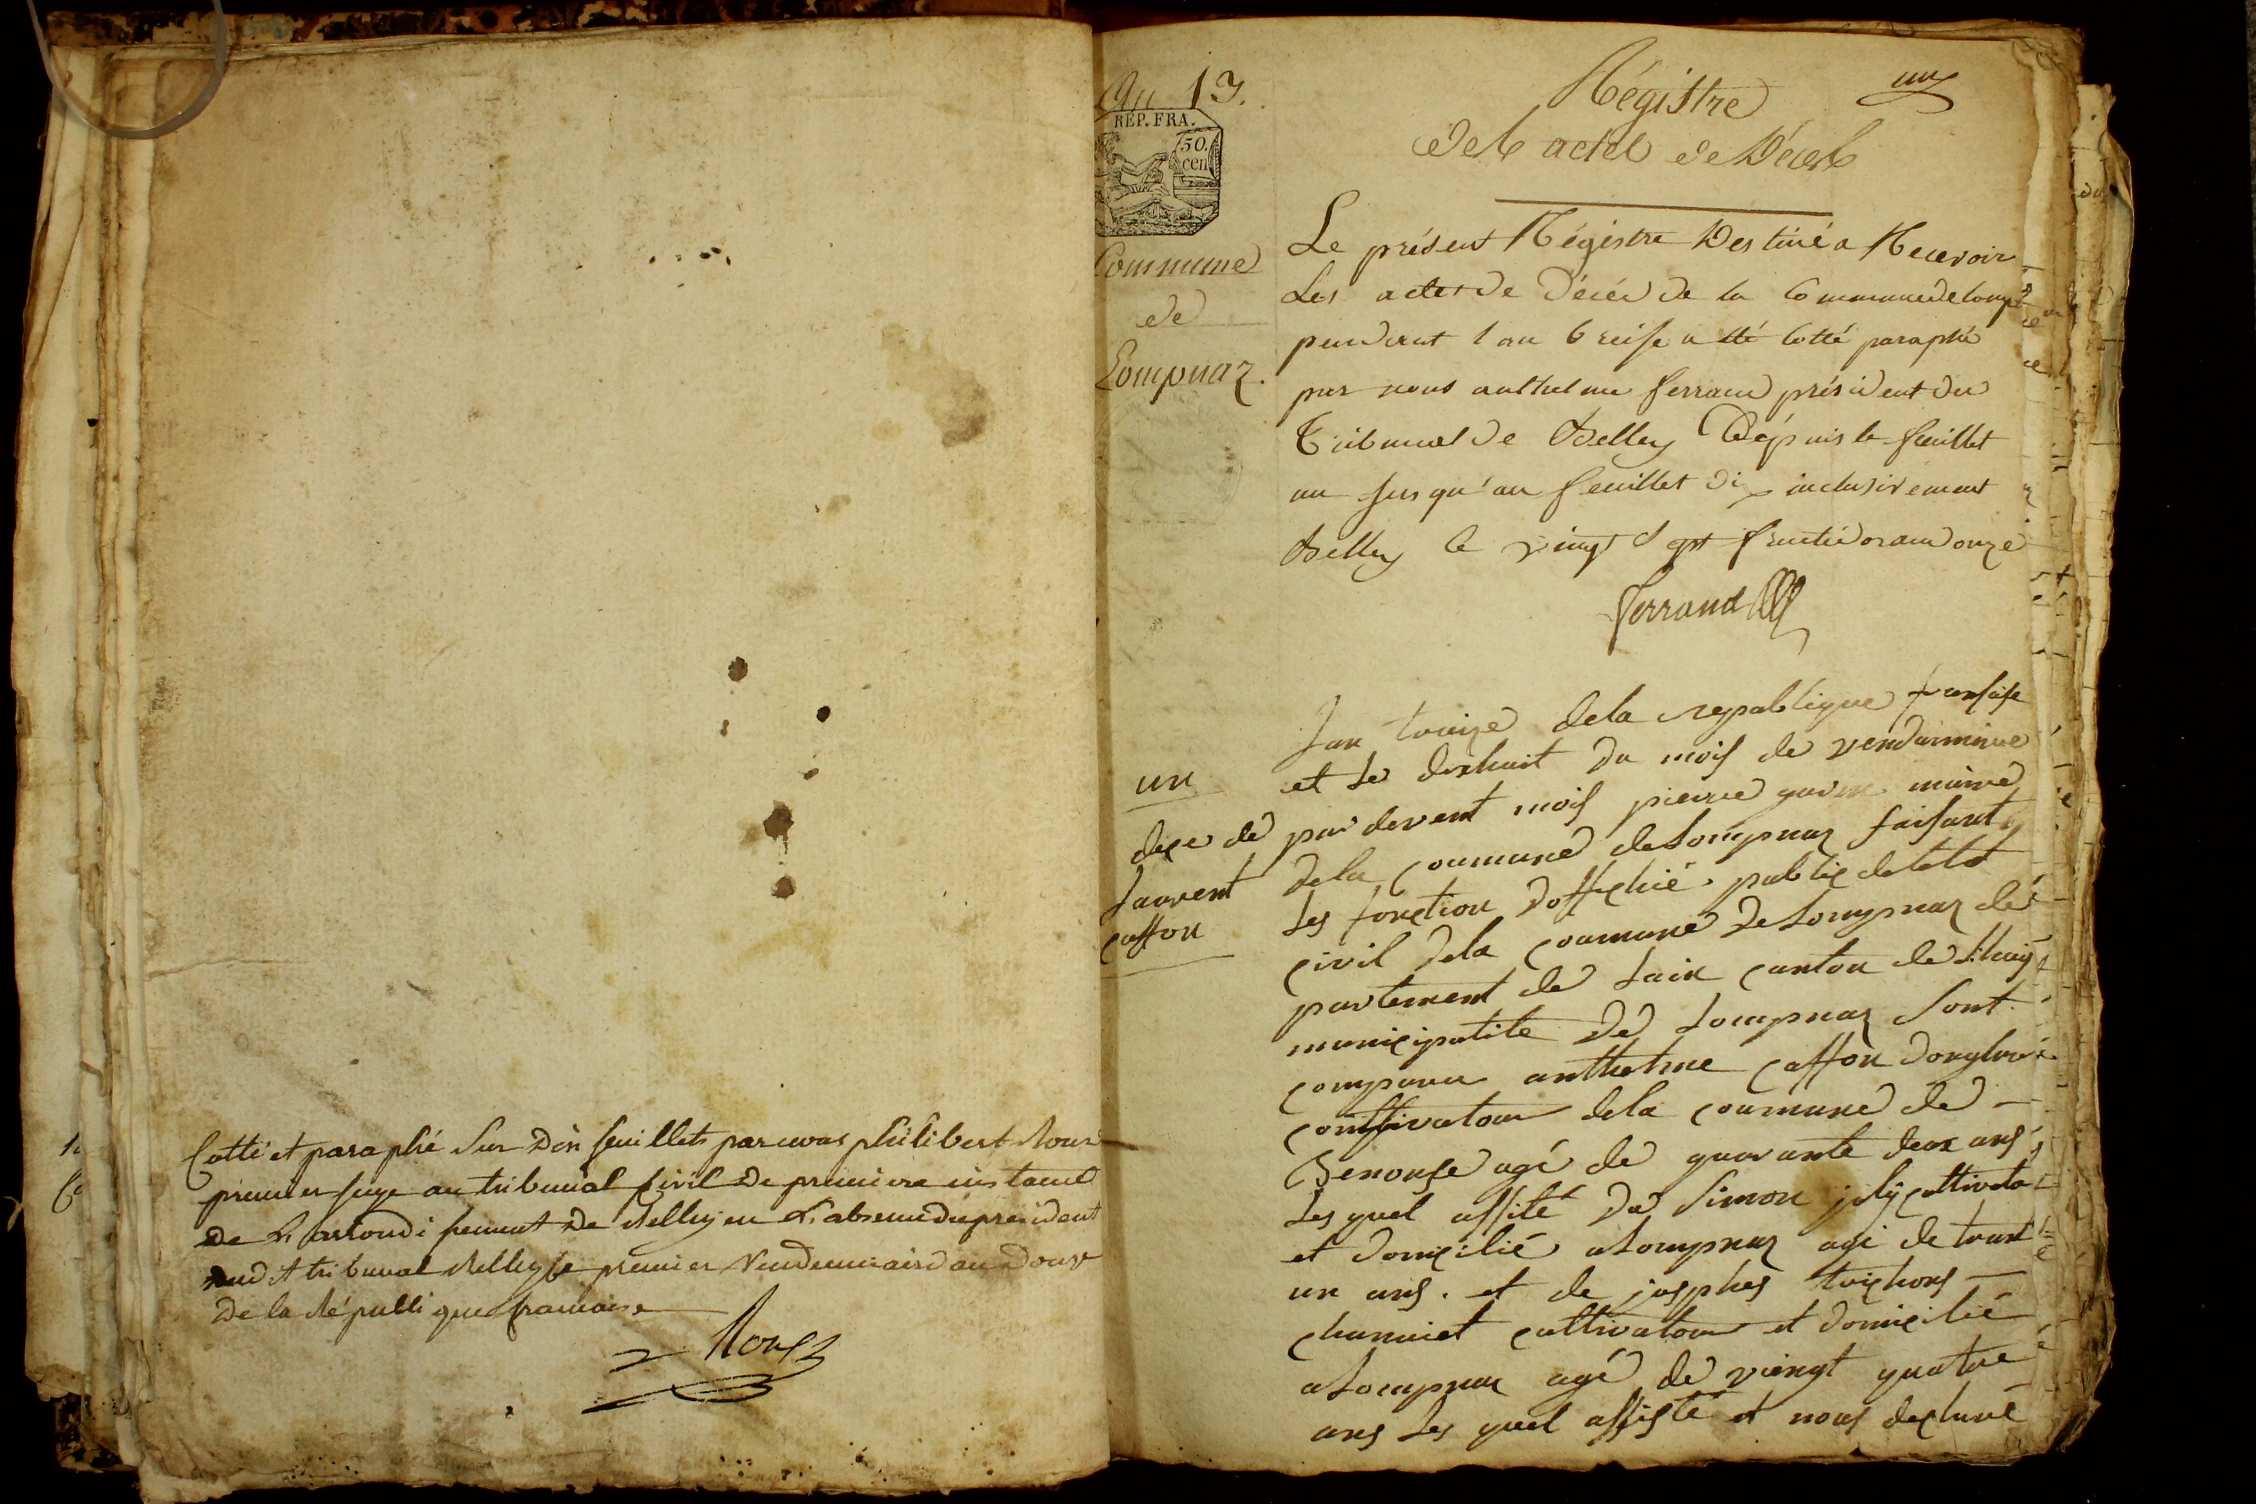 Cotté et paraphé sur dix feuillets par nous philibert Roux
premier juge au tribunal civil de premiere instance
de L'arrondissement de Belley en L'absence du president
dudit tribunal Belley le premier Vendemiaire an douze
de la République francaise
Roux
An 13.
REP. FRA.
50.
cen
Commune
de
Lompnaz.
un
Régistre
des actes de Décès
Le présent Régistre Destiné a Recevoir
Les actes de Décès de la Commune de lomp
pendant l'an treise a été Cotté paraphé
par nous anthelme ferrand président du
Tribunal de Belley Dépuis le feuillet
un jusqu'au feuillet dix inclusivement
Belley le vingt sept fructidor an onze
ferrand
un
dece de
laurent
caffon
Lan traize de la republique fransaise
et le dixhuit du mois de vendarmiere
par devent mois pierre maire
de la coumune de Lompnaz faisant
les fonction d'offichié public de letat
civil de la coumune de Lompnaz dé
partement de Lain canton de
municipalité de Lompnaz sont
comparu anthelme caffon
de la coumune de
Benonse agé de quarante deux ans
les quel assité de Simon joly cultivato
et domicilié a Lompnaz agé de trant
un ans. et de josphes trichons
cultivatour et domicilié
a Lompnaz agé de viengt quatre
ans les quel assisté et nous declaré